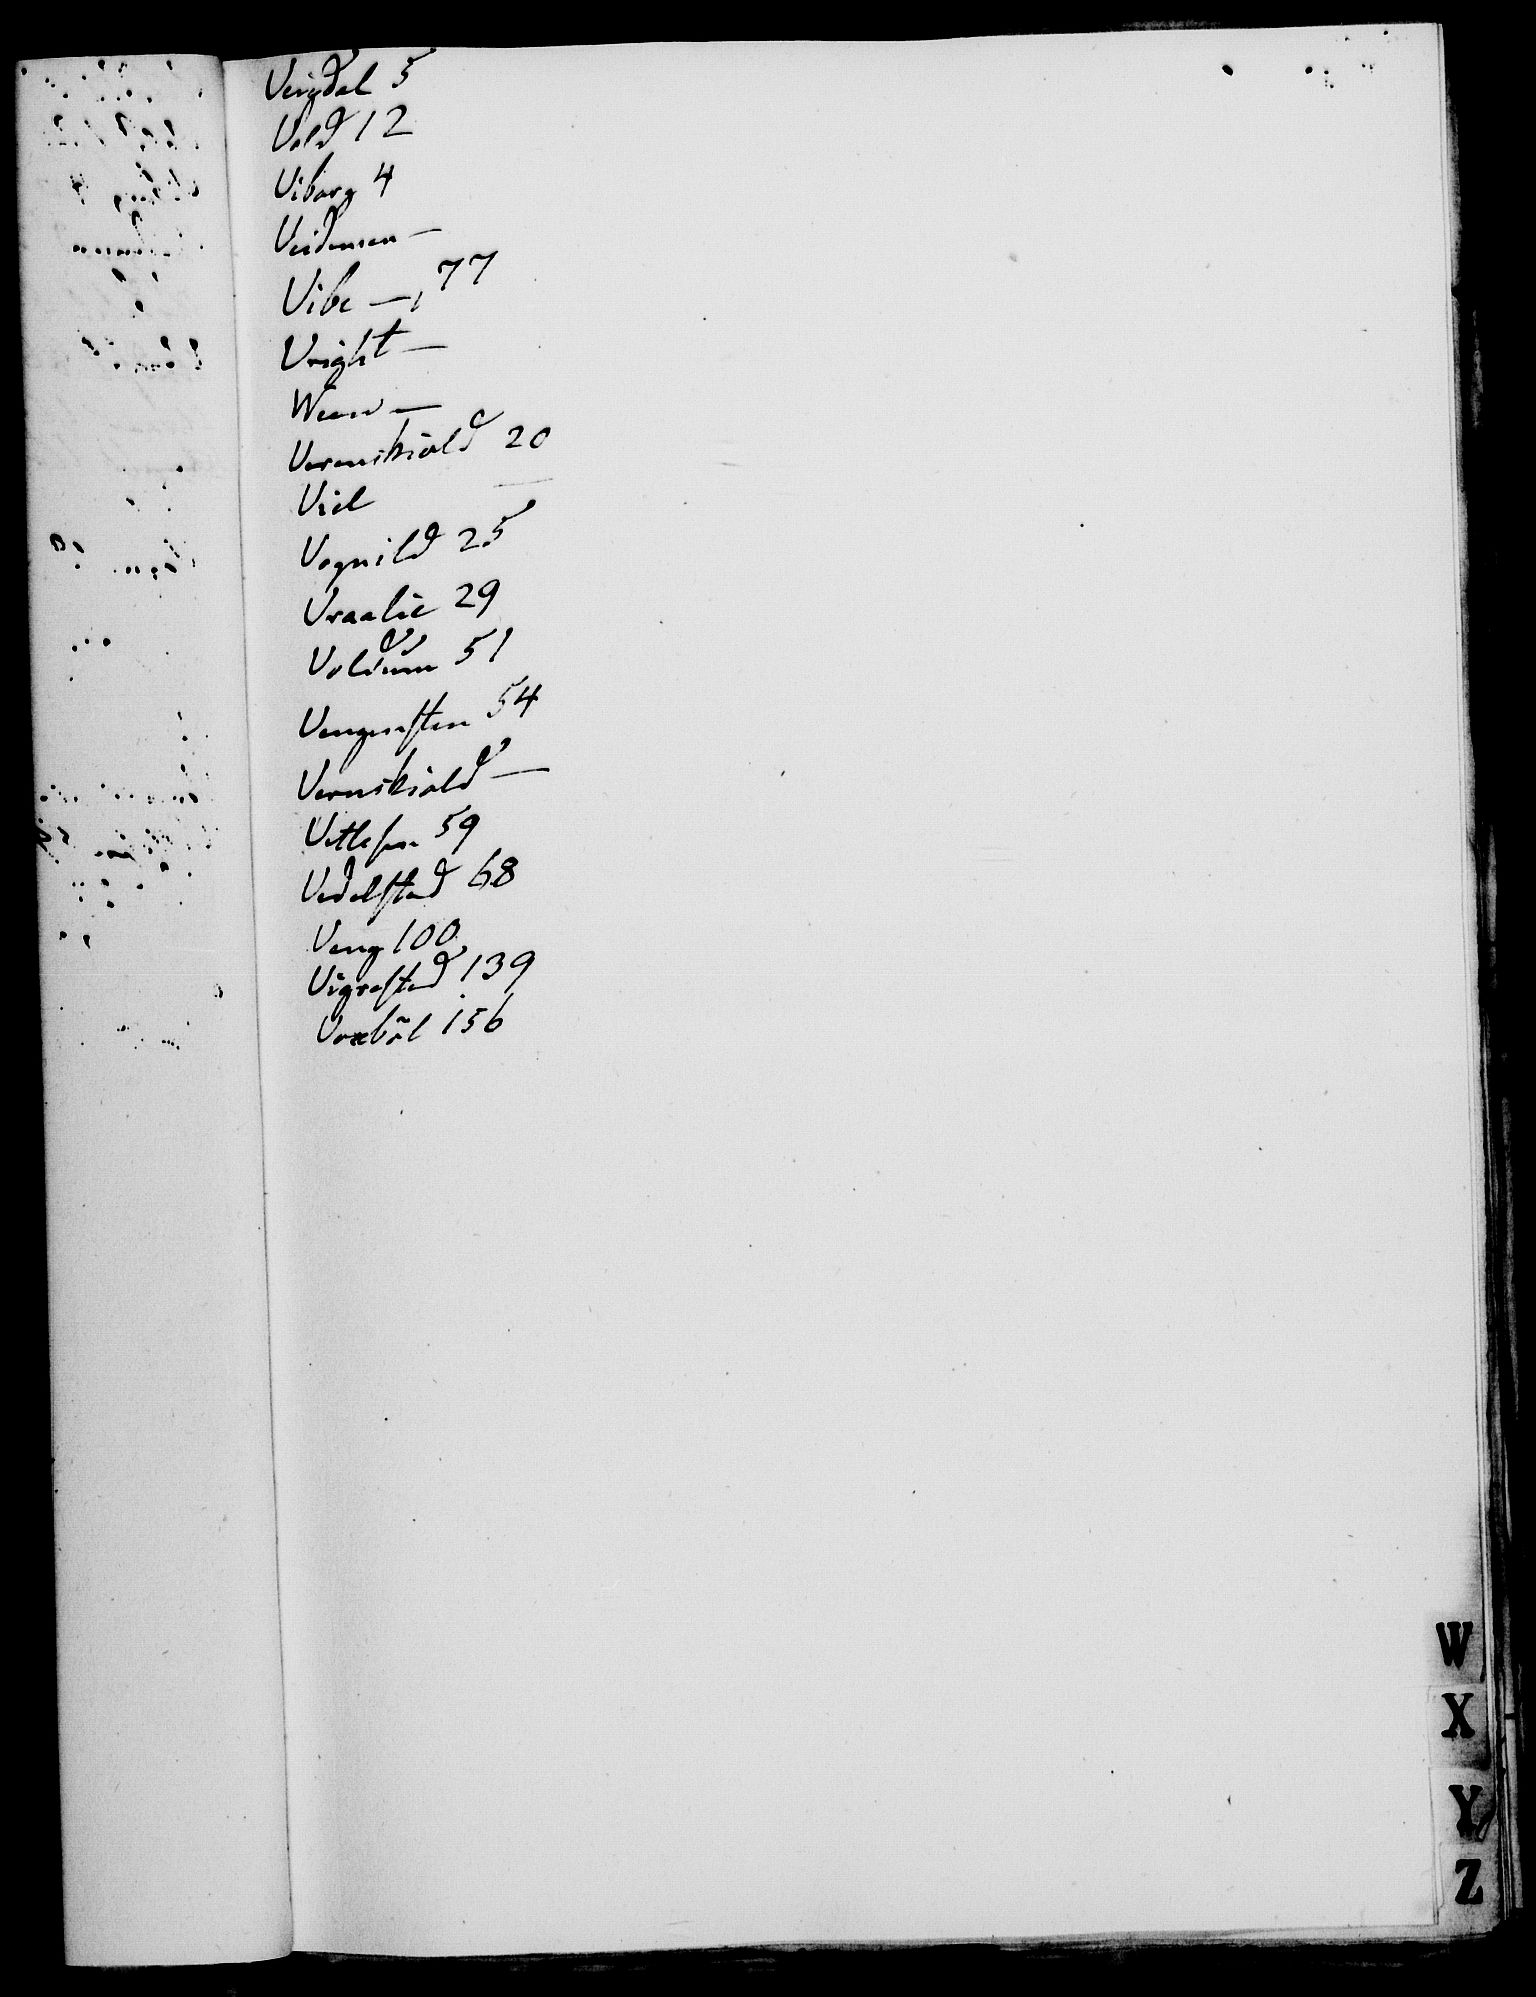 Verdal 5
Vold 12
Viborg 4
Veidemen —
Vibe —, 77
Vright —
Ween —
Verenskiold 20
Viel
Vognild 25
Vraalie 29
Voldum 51
Vengensten 54
Vernskiold —
Vettlesen 59
Vedelstad 68
Veng 100
Vigrestad 139
Voxböl 156
W
X
Y
Z